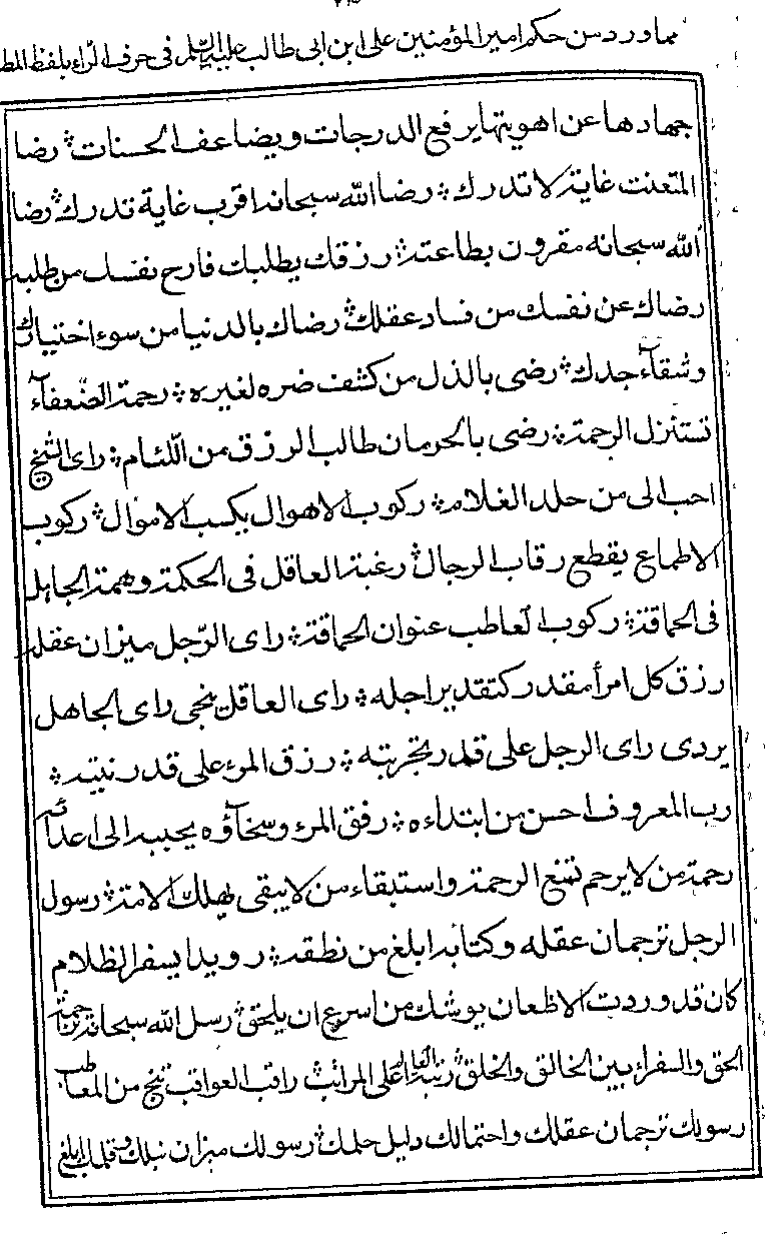 مما ورد من حكم امير المؤمنين على ابن ابى طالب عليه السلم فى حرف الراء بلفظ المط
جهادها عن اهويتها يرفع الدرجات ويضاعف الحسنات؞ رضا
المتعنت غاية لا تدرك؞ رضا الله سبحانه اقرب غاية تدرك؞ رضا
الله سبحانه مقرون بطاعته؞ رزقك يطلبك فارح نفسك من طلبه
رضاك عن نفسك من فساد عقلك؞ رضاك بالدنيا من سوء اختيارك
وشقآء جدك؞ رضى بالذل من كشف ضره لغيره؞ رحمة الضعفآء
تستنزل الرحمة؞ رضى بالحرمان طالب الرزق من اللئام؞ راى الشيخ
احب الى من جلد الغلام؞ ركوب الاهوال يكسب الاموال؞ ركوب
الاطماع يقطع رقاب الرجال؞ رغبة العاقل فى الحكمة وهمة الجاهل
فى الحماقة؞ ركوب المعاطب عنوان الحماقة؞ راى الرّجل ميزان عقله
رزق كل امرأ مقدر كتقدير اجله؞ راى العاقل ينجى راى الجاهل
يردى راى الرجل على قدر تجربته؞ رزق المرء على قدر نيته؞
رب المعروف احسن من ابتداءه؞ رفق المرء وسخآؤه يحببه الى اعدائه
رحمة من لا يرحم تمنع الرحمة واستبقاء من لا يبقى يهلك الامة؞ رسول
الرجل ترجمان عقله وكتابه ابلغ من نطقه؞ رويدا يسفر الظلام
كان قد وردت الاظعان يوشك من اسرع ان يلحق؞ رسل الله سبحانه تراجمة
الحق والسفراء بين الخالق والخلق؞ رتبة العالم اعلى المراتب؞ راقب العواقب تنج من المعاطب
رسولك ترجمان عقلك واحتمالك دليل حلمك؞ رسولك ميزان نبلك وقلمك ابلغ